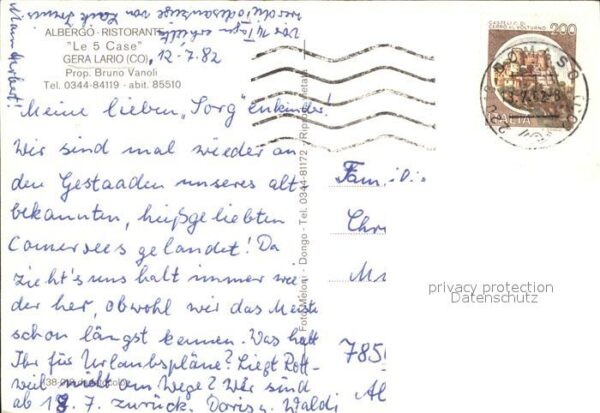 ALBERGO - RISTORANTE
"Le 5 Case"
GERA LARIO (CO)
Prop. Bruno Vanoli
Tel. 0344-84119 - abit. 85510
12.7.82
Meine lieben "Sorg"enkinder!
Wir sind mal wieder an
den Gestaaden unseres alt
bekannten, heißgeliebten
Comersees gelandet! Da
zieht's uns halt immer wie
der her, obwohl wir das Meiste
schon längst kennen. Was habt
Ihr für Urlaubspläne? Liegt Rott-
weil nicht am Wege? Wir sind
ab 18.7. zurück. Doris u. Waldi
Vor 14 Tagen erhielt
Foto Meloni - Dongo - Tel. 0344-81172 - Riproduz. vietata
CASTELLO DI
CERRO AL VOLTURNO
200
ITALIA
Fam.
Chr
785
privacy protection
Datenschutz